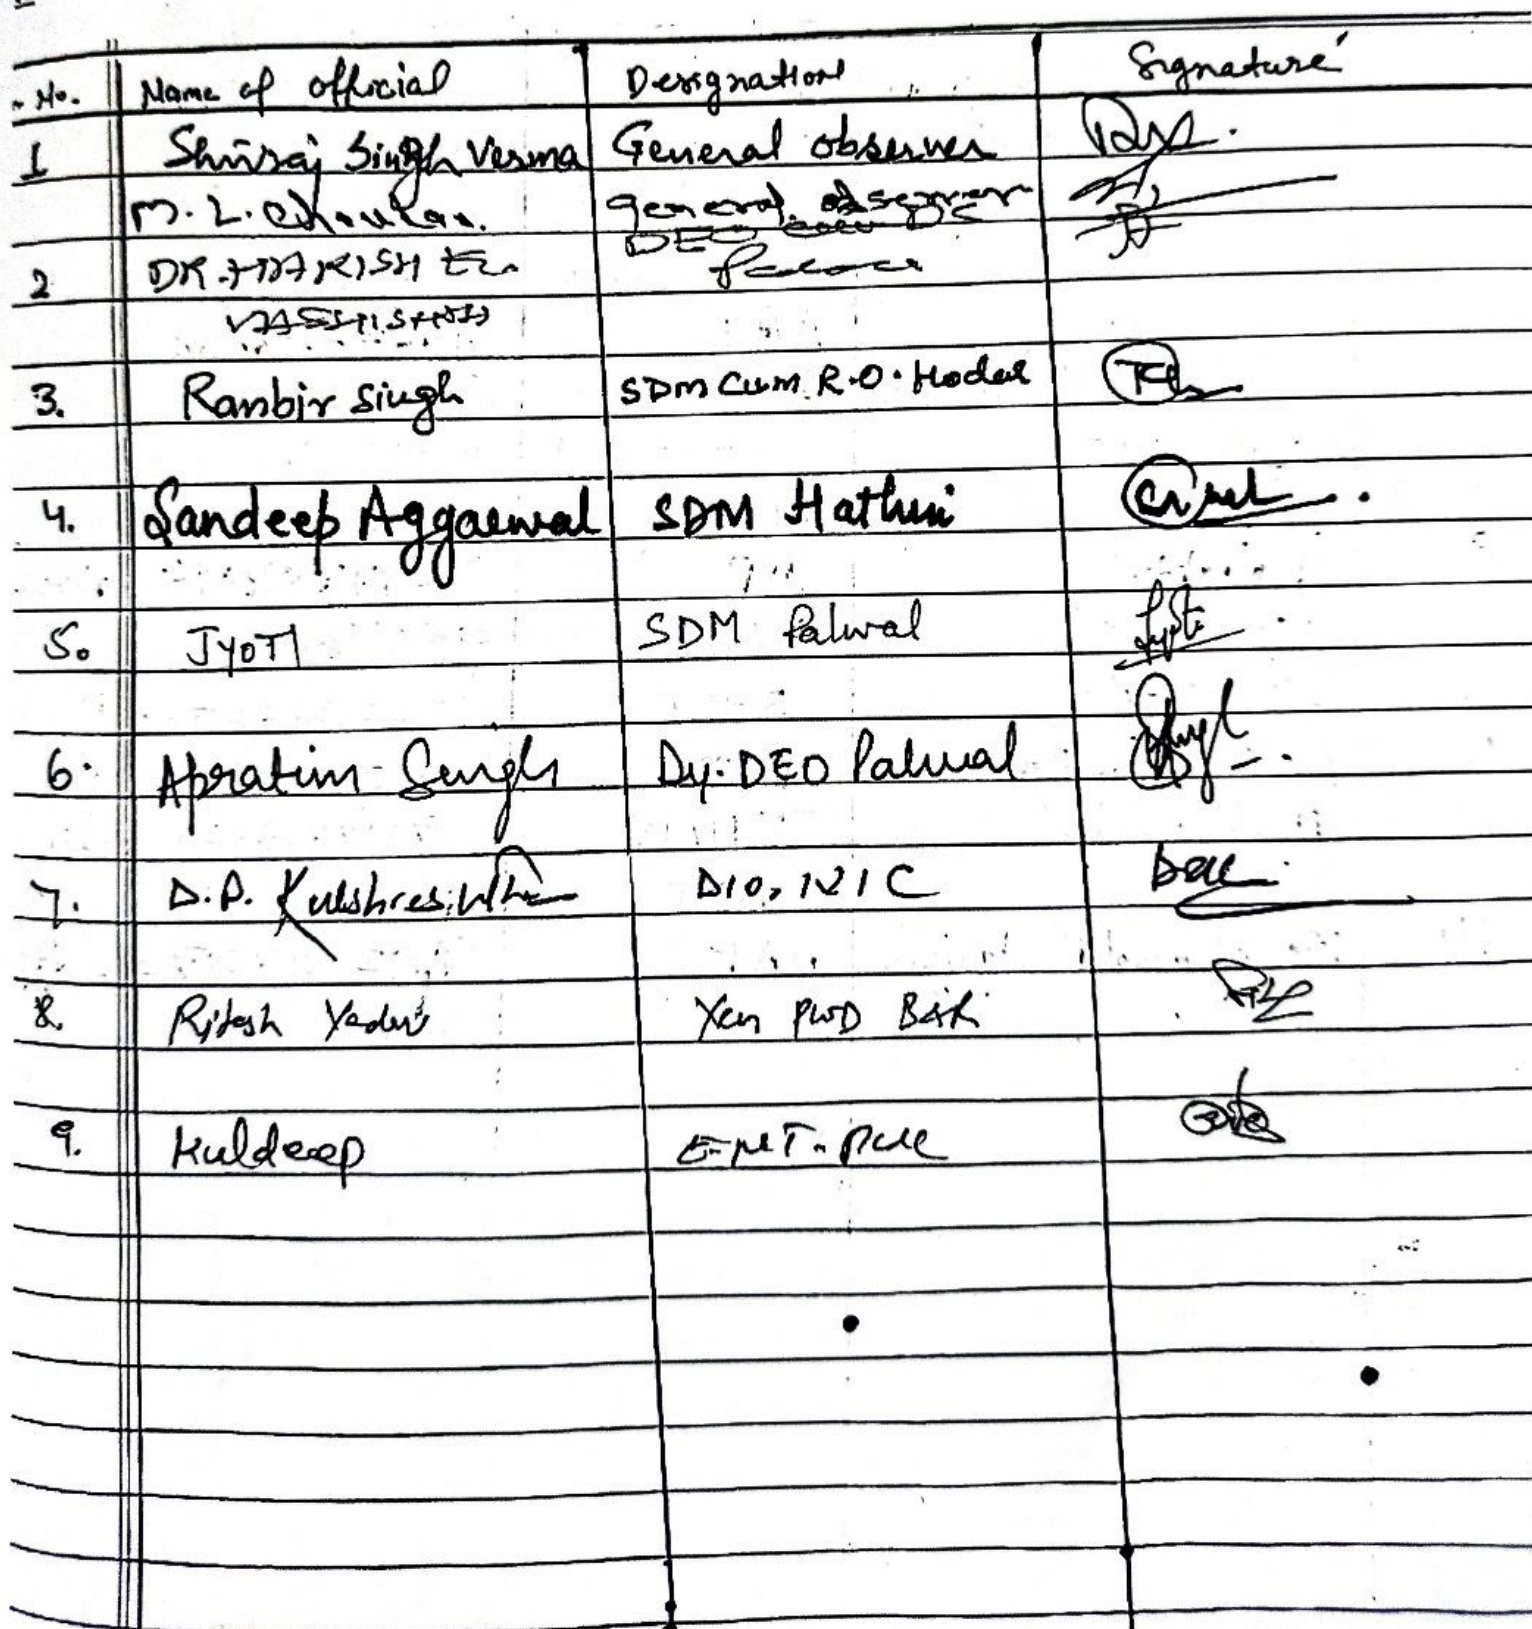 No. Name of official Designation Signature
1 Shivraj Singh Verma General observer
M. L. Chouhan. general observer
DEO cum DC
2 DR. HARISH KR. Palwal
VASHISHTH
3. Ranbir Singh SDM Cum R.O. Hodal
4. Sandeep Aggarwal SDM Hathin
5. JYOTI SDM Palwal
6. Apratim Singh Dy. DEO Palwal
7. D.P. Kulshreshtha DIO, NIC
8. Ritesh Yadav Xen PWD B&R
9. Kuldeep